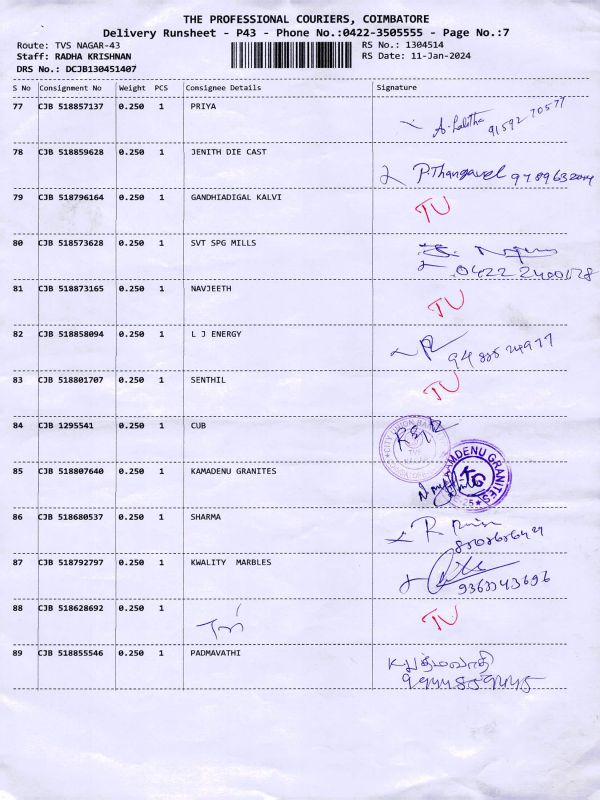 THE PROFESSIONAL COURIERS, COIMBATORE
Delivery Runsheet - P43 - Phone No.:0422-3505555 - Page No.:7
Route: TVS NAGAR-43 RS No.: 1304514
Staff: RADHA KRISHNAN RS Date: 11-Jan-2024
DRS No.: DCJB130451407
S No Consignment No Weight PCS Consignee Details Signature
77 CJB 518857137 0.250 1 PRIYA
A. Lalitha 91592 70577
78 CJB 518859628 0.250 1 JENITH DIE CAST
P.Thangavel
79 CJB 518796164 0.250 1 GANDHIADIGAL KALVI TU
80 CJB 518573628 0.250 1 SVT SPG MILLS
81 CJB 518873165 0.250 1 NAVJEETH TU
82 CJB 518858094 0.250 1 L J ENERGY
83 CJB 518801707 0.250 1 SENTHIL TU
84 CJB 1295541 0.250 1 CUB
85 CJB 518807640 0.250 1 KAMADENU GRANITES KAMDENU GRANITES
86 CJB 518680537 0.250 1 SHARMA
87 CJB 518792797 0.250 1 KWALITY MARBLES
9363343696
88 CJB 518628692 0.250 1 TU
89 CJB 518855546 0.250 1 PADMAVATHI